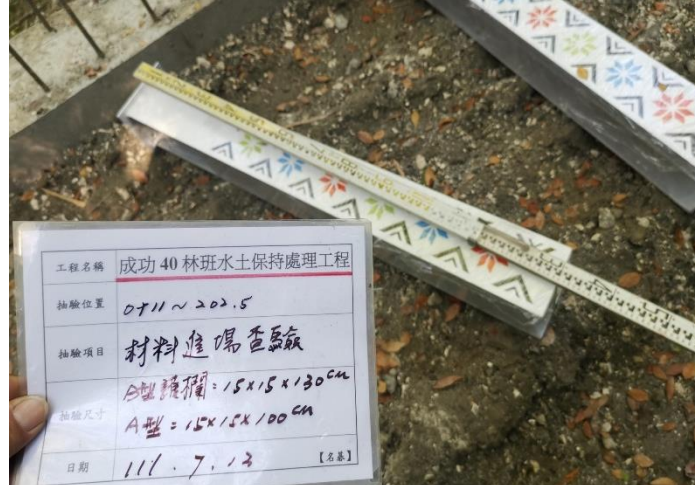 工程名稱 成功 40 林班水土保持處理工程
抽驗位置 0+11～202.5
抽驗項目 材料進場查驗
抽驗尺寸 B型護欄=15x15x130cm
A型=15x15x100cm
日期 111.7.12 【名募】